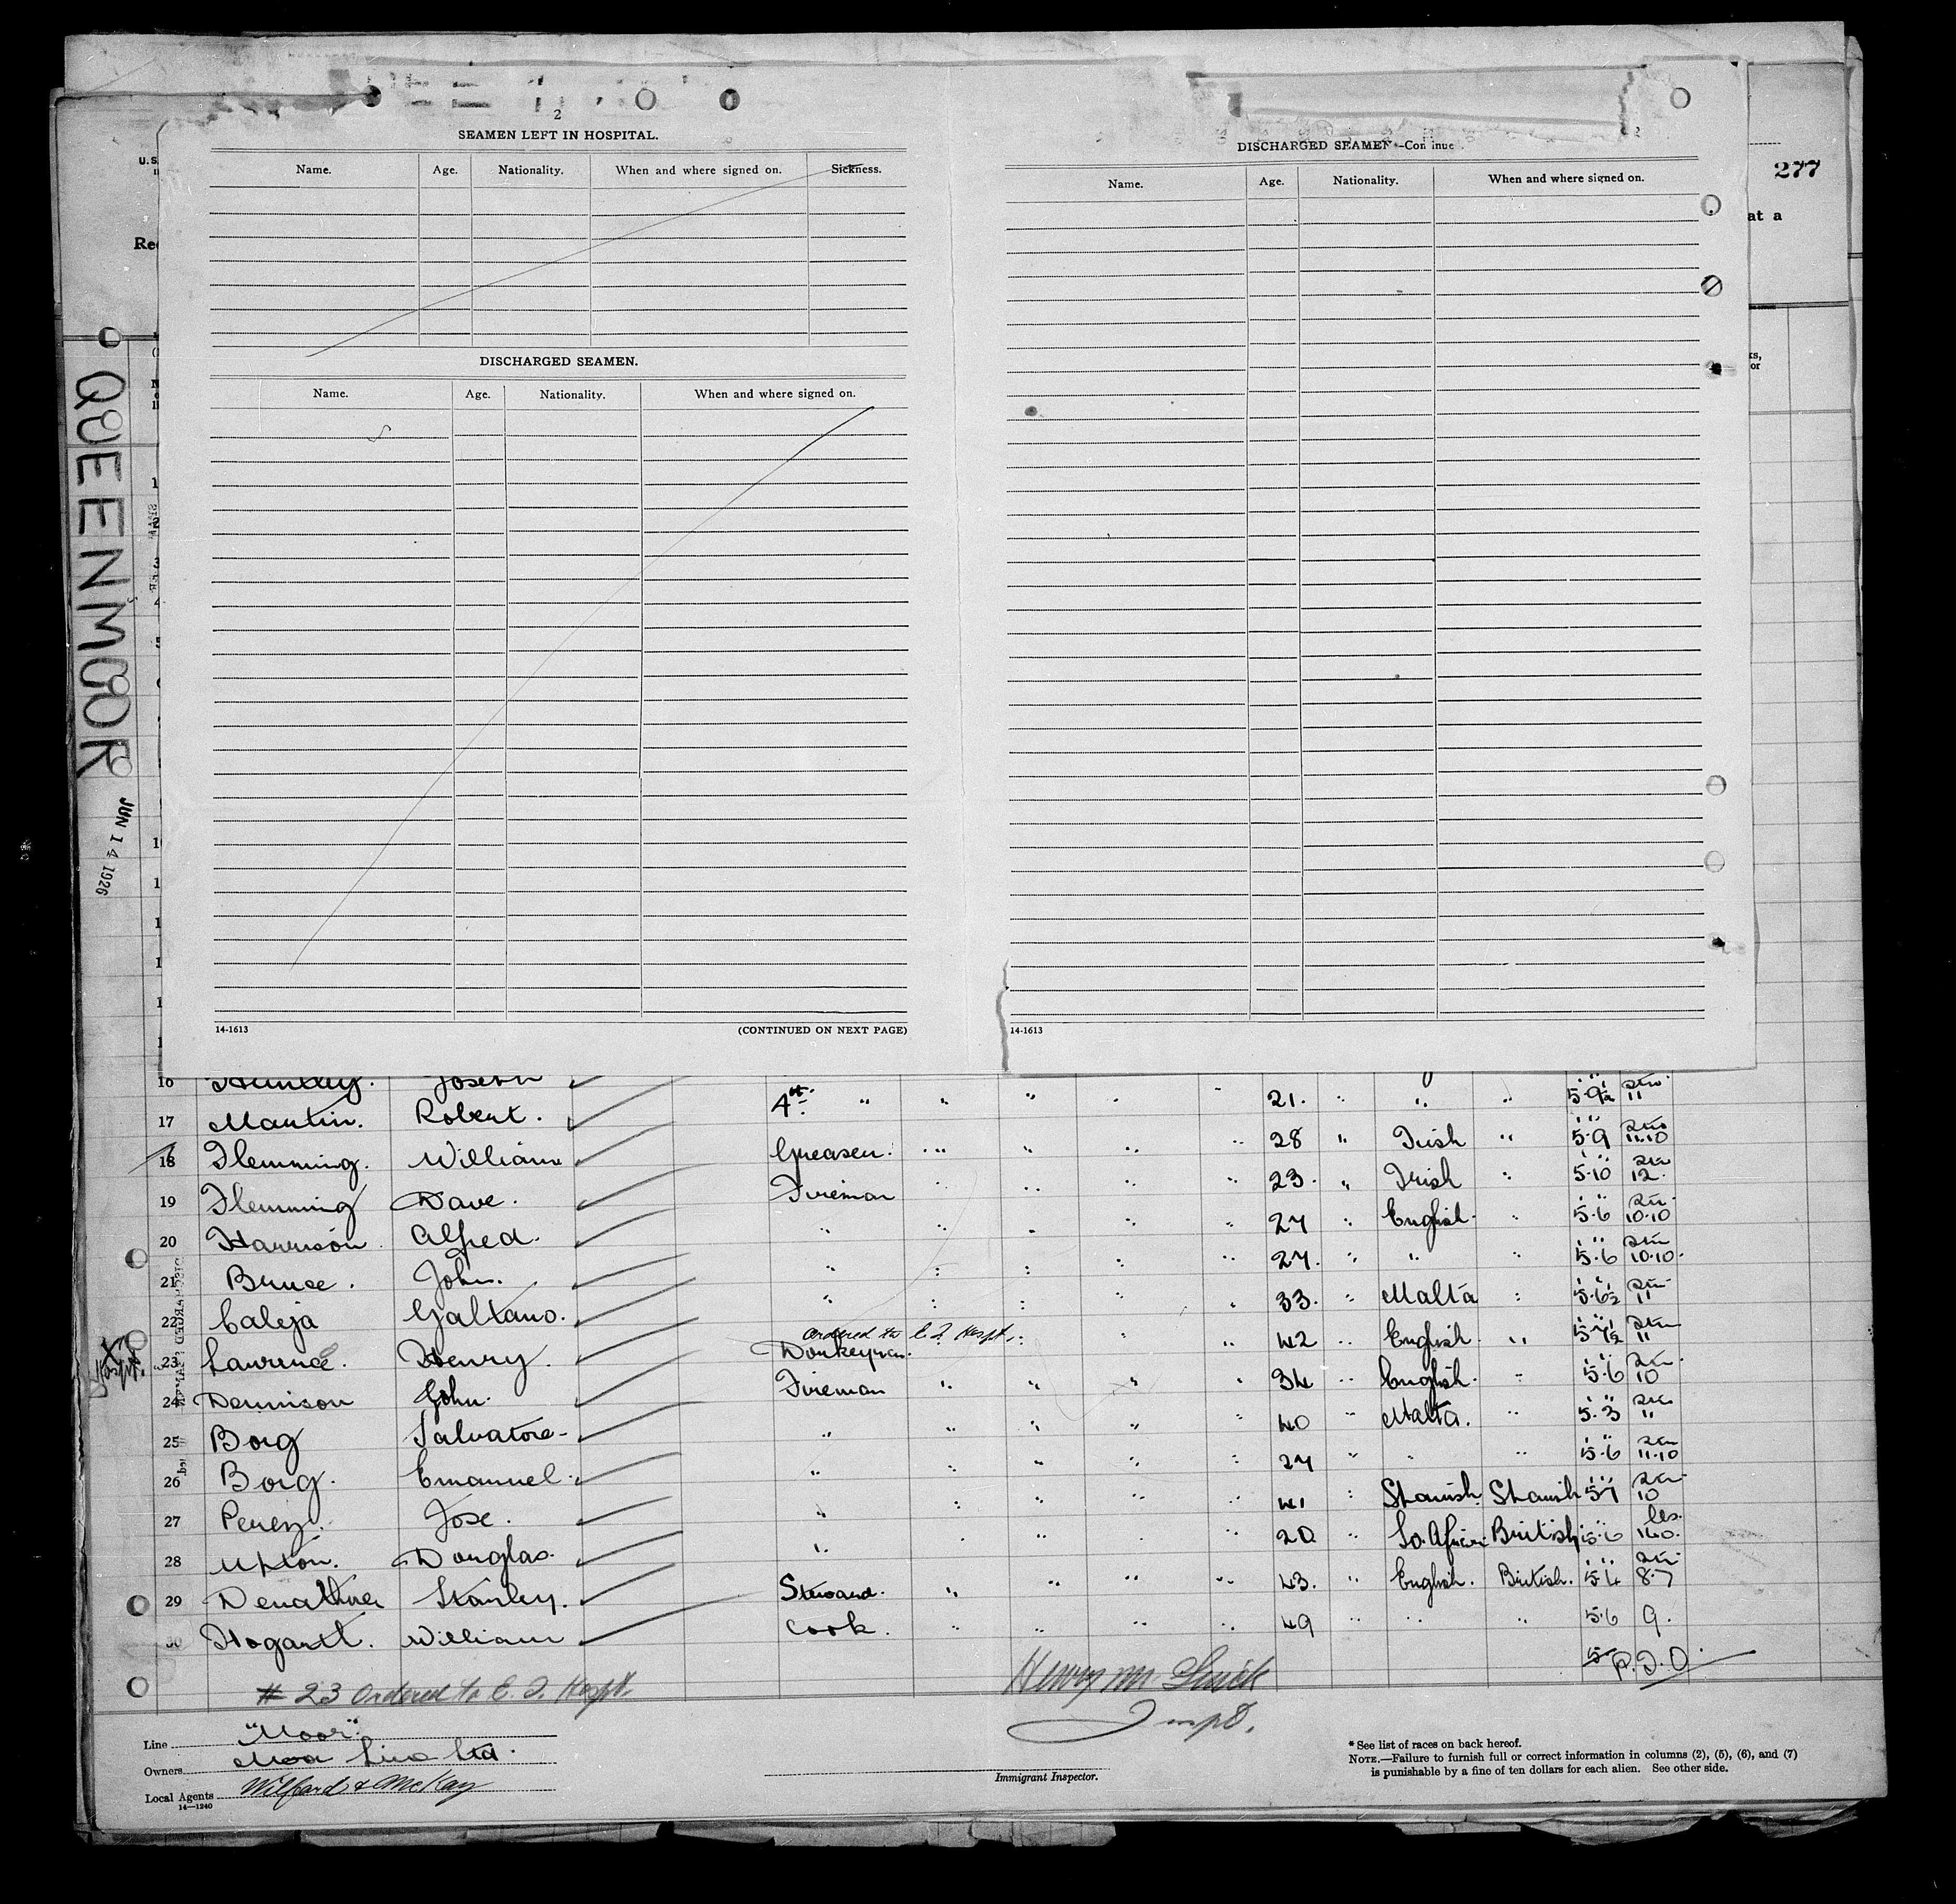 2
SEAMEN LEFT IN HOSPITAL.
Name. Age. Nationality. When and where signed on. Sickness.
DISCHARGED SEAMEN.
Name. Age. Nationality. When and where signed on.
14-1613 (CONTINUED ON NEXT PAGE)
DISCHARGED SEAMEN—Con inue
Name. Age. Nationality. When and where signed on.
14-1613
277
at a
U.S.
Re
QUEENMOOR
JUN 14 1926
16 Huntley. Joseph
17 Martin. Robert. 4th " " " " 21. " " " 5-9½ 11
18 Flemming. William Greaser. " " " " 28 " Irish " 5-9 11-10
19 Flemming Dave. Fireman " " " " 23. " Irish " 5-10 12
20 Harrison Alfred. " " " " " 27 " English. " 5-6 10-10
21 Bruce. John. " " " " " 27. " " " 5-6 10-10.
22 Caleja Galtano. " " " " " 33. " Malta " 5-6½ 11
ordered to E. I. Hospt.
Hospt. 23 Lawrence. Henry. Donkeyman. " " " 42 " English. " 5-7½ 11
24 Dennison John. Fireman " " " " 34 " English. " 5-6 10
25 Borg Salvatore " " " " " 40 " Malta. " 5-3 11
26 Borg. Emanuel. " " " " " 27 " " " 5-6 11-10
27 Perez. Jose. " " " " " 41 " Spanish. Spanish 5-7 10
28 Upton. Douglas. " " " " " 20 " So. African British 5-6 160. lbs.
29 Stanley. Steward. " " " " 43. " English. British. 5-4 8-7
30 Hogartt. William Cook. " " " " 49 " " " 5-6 9.
# 23 Ordered to E. I. Hospt.
Henry M.
Inspt.
Line "Moor"
Owners Moor Line Ltd.
Local Agents
14—1240
Immigrant Inspector.
* See list of races on back hereof.
NOTE.—Failure to furnish full or correct information in columns (2), (5), (6), and (7)
is punishable by a fine of ten dollars for each alien. See other side.